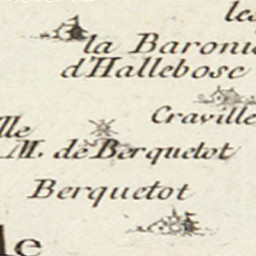 les
la Baronie
d'Hallebosc
Craville
lle
M. de Berquetot
Berquetot
le